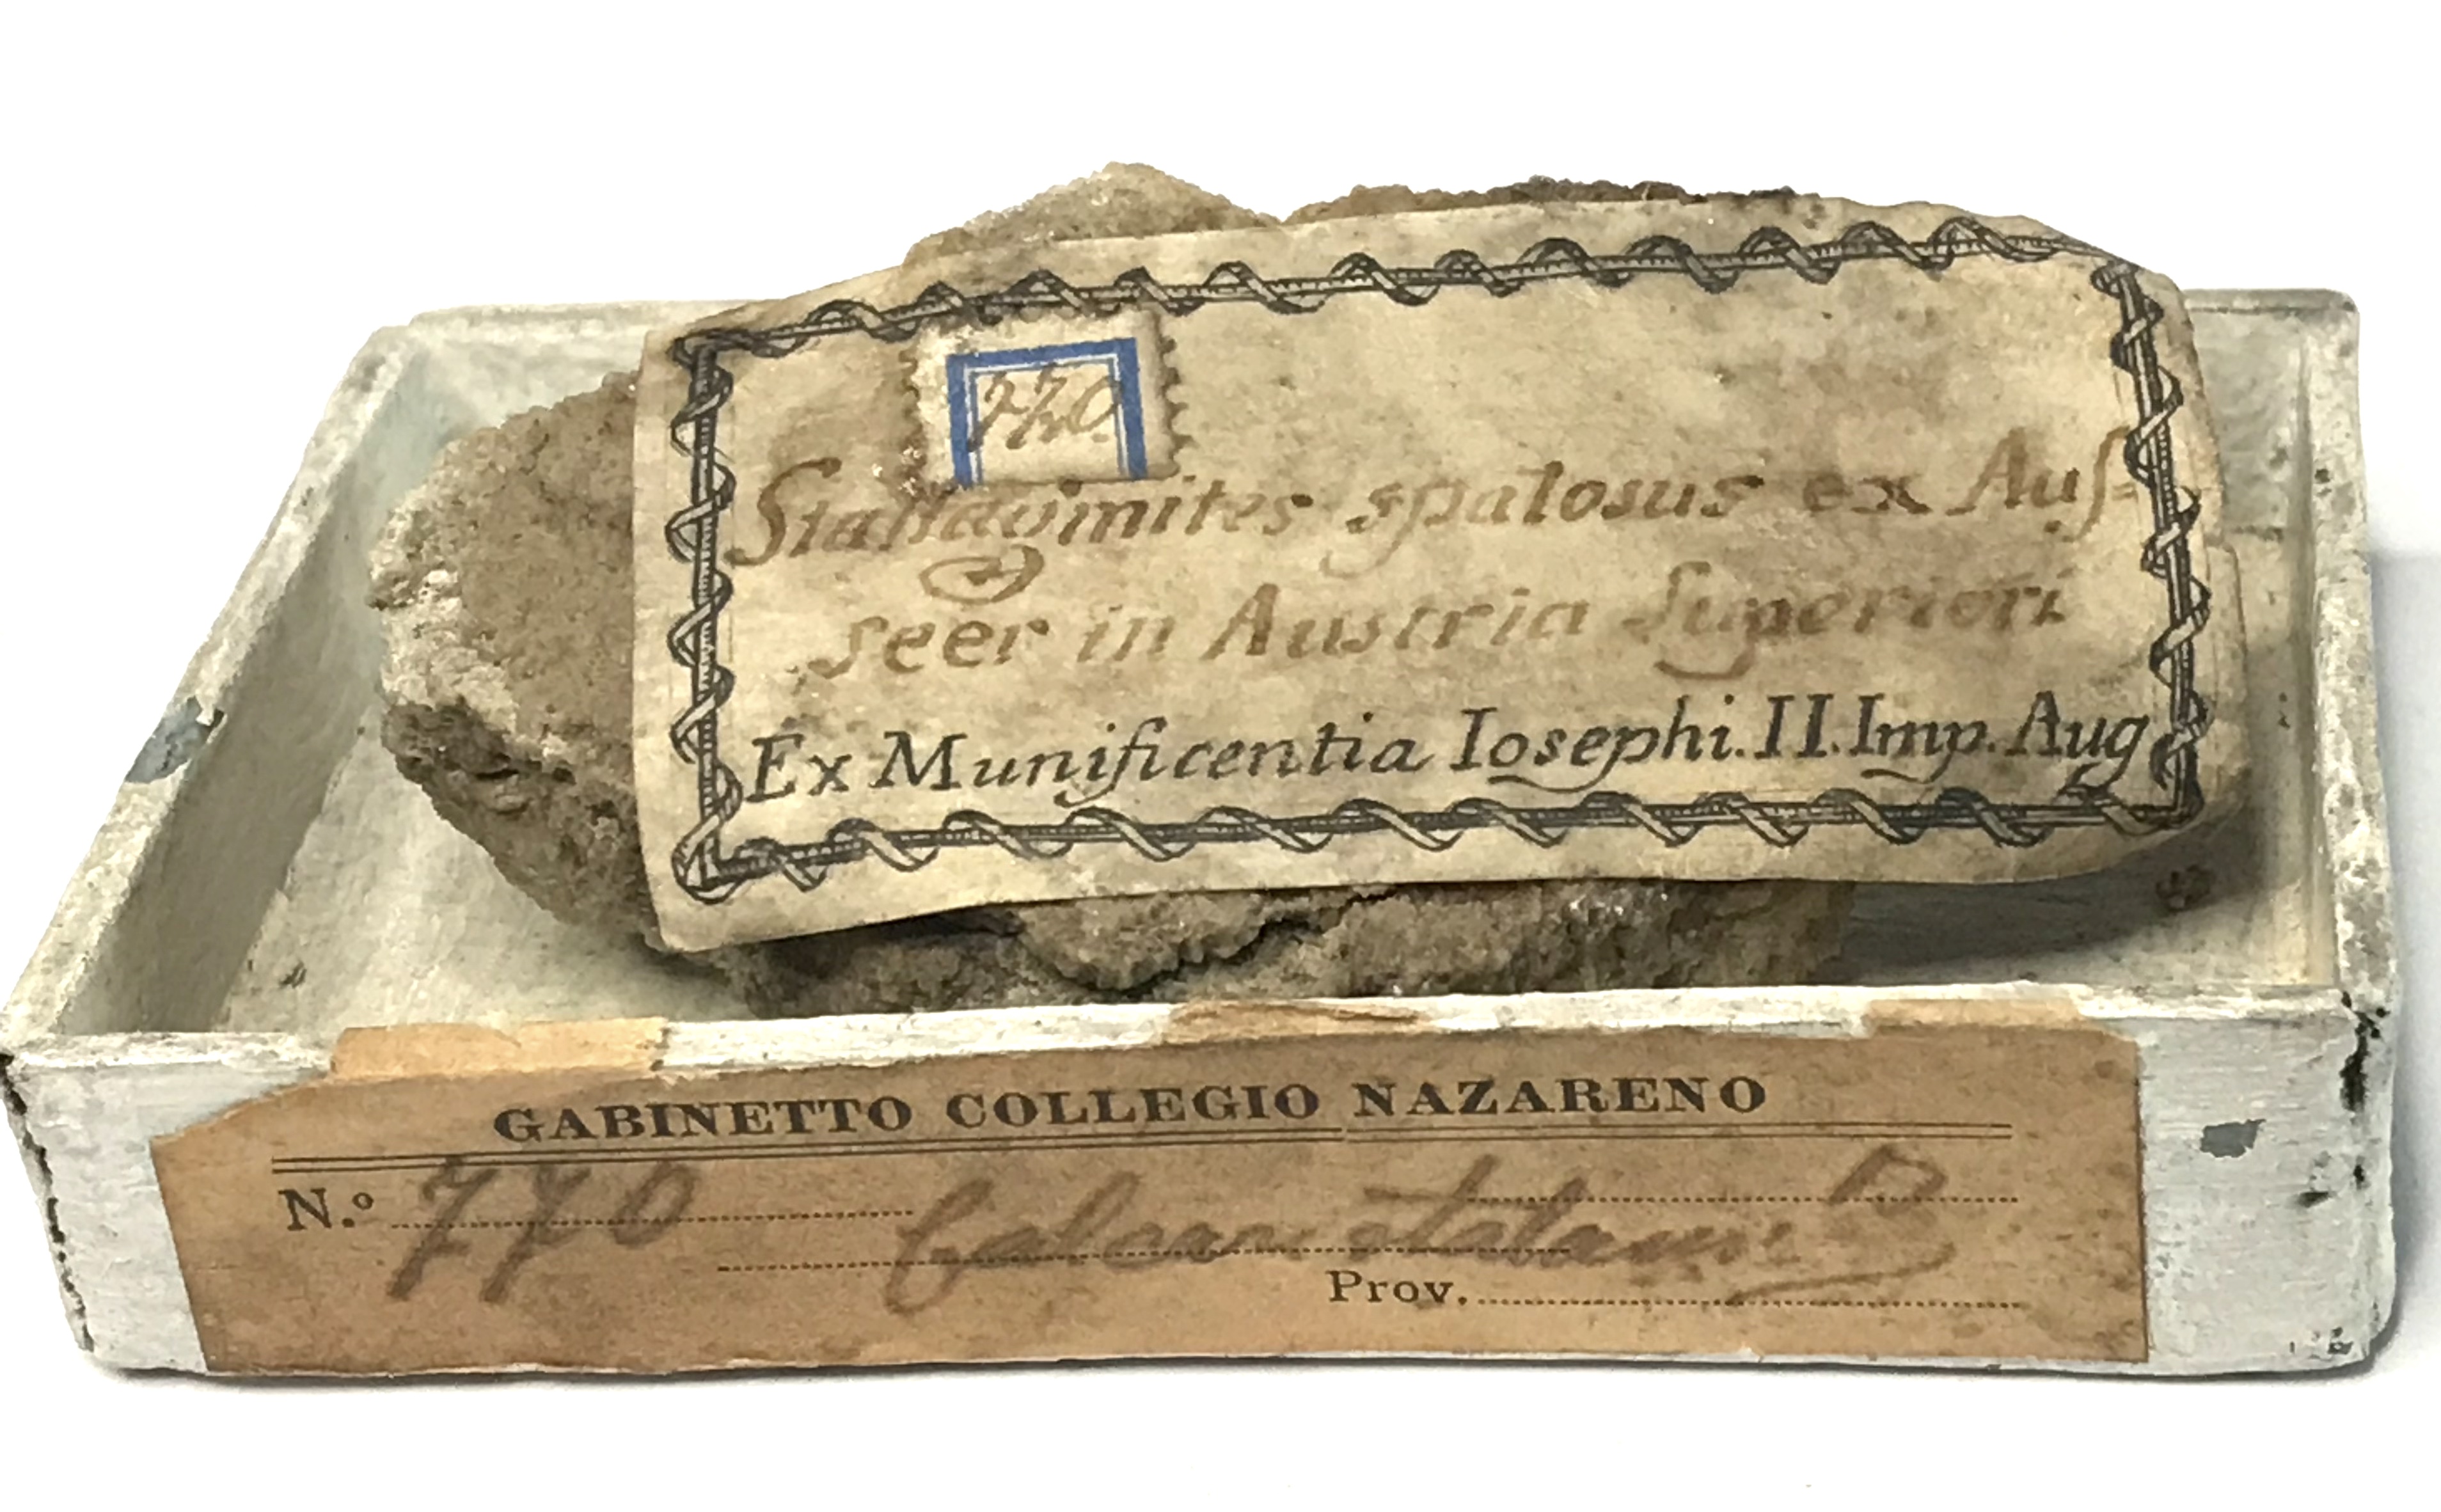 770.
Stallagmites spatosus ex Aus=
seer in Austria Superiori
Ex Munificentia Iosephi. II. Imp. Aug
GABINETTO COLLEGIO NAZARENO
N.º 770
Prov.